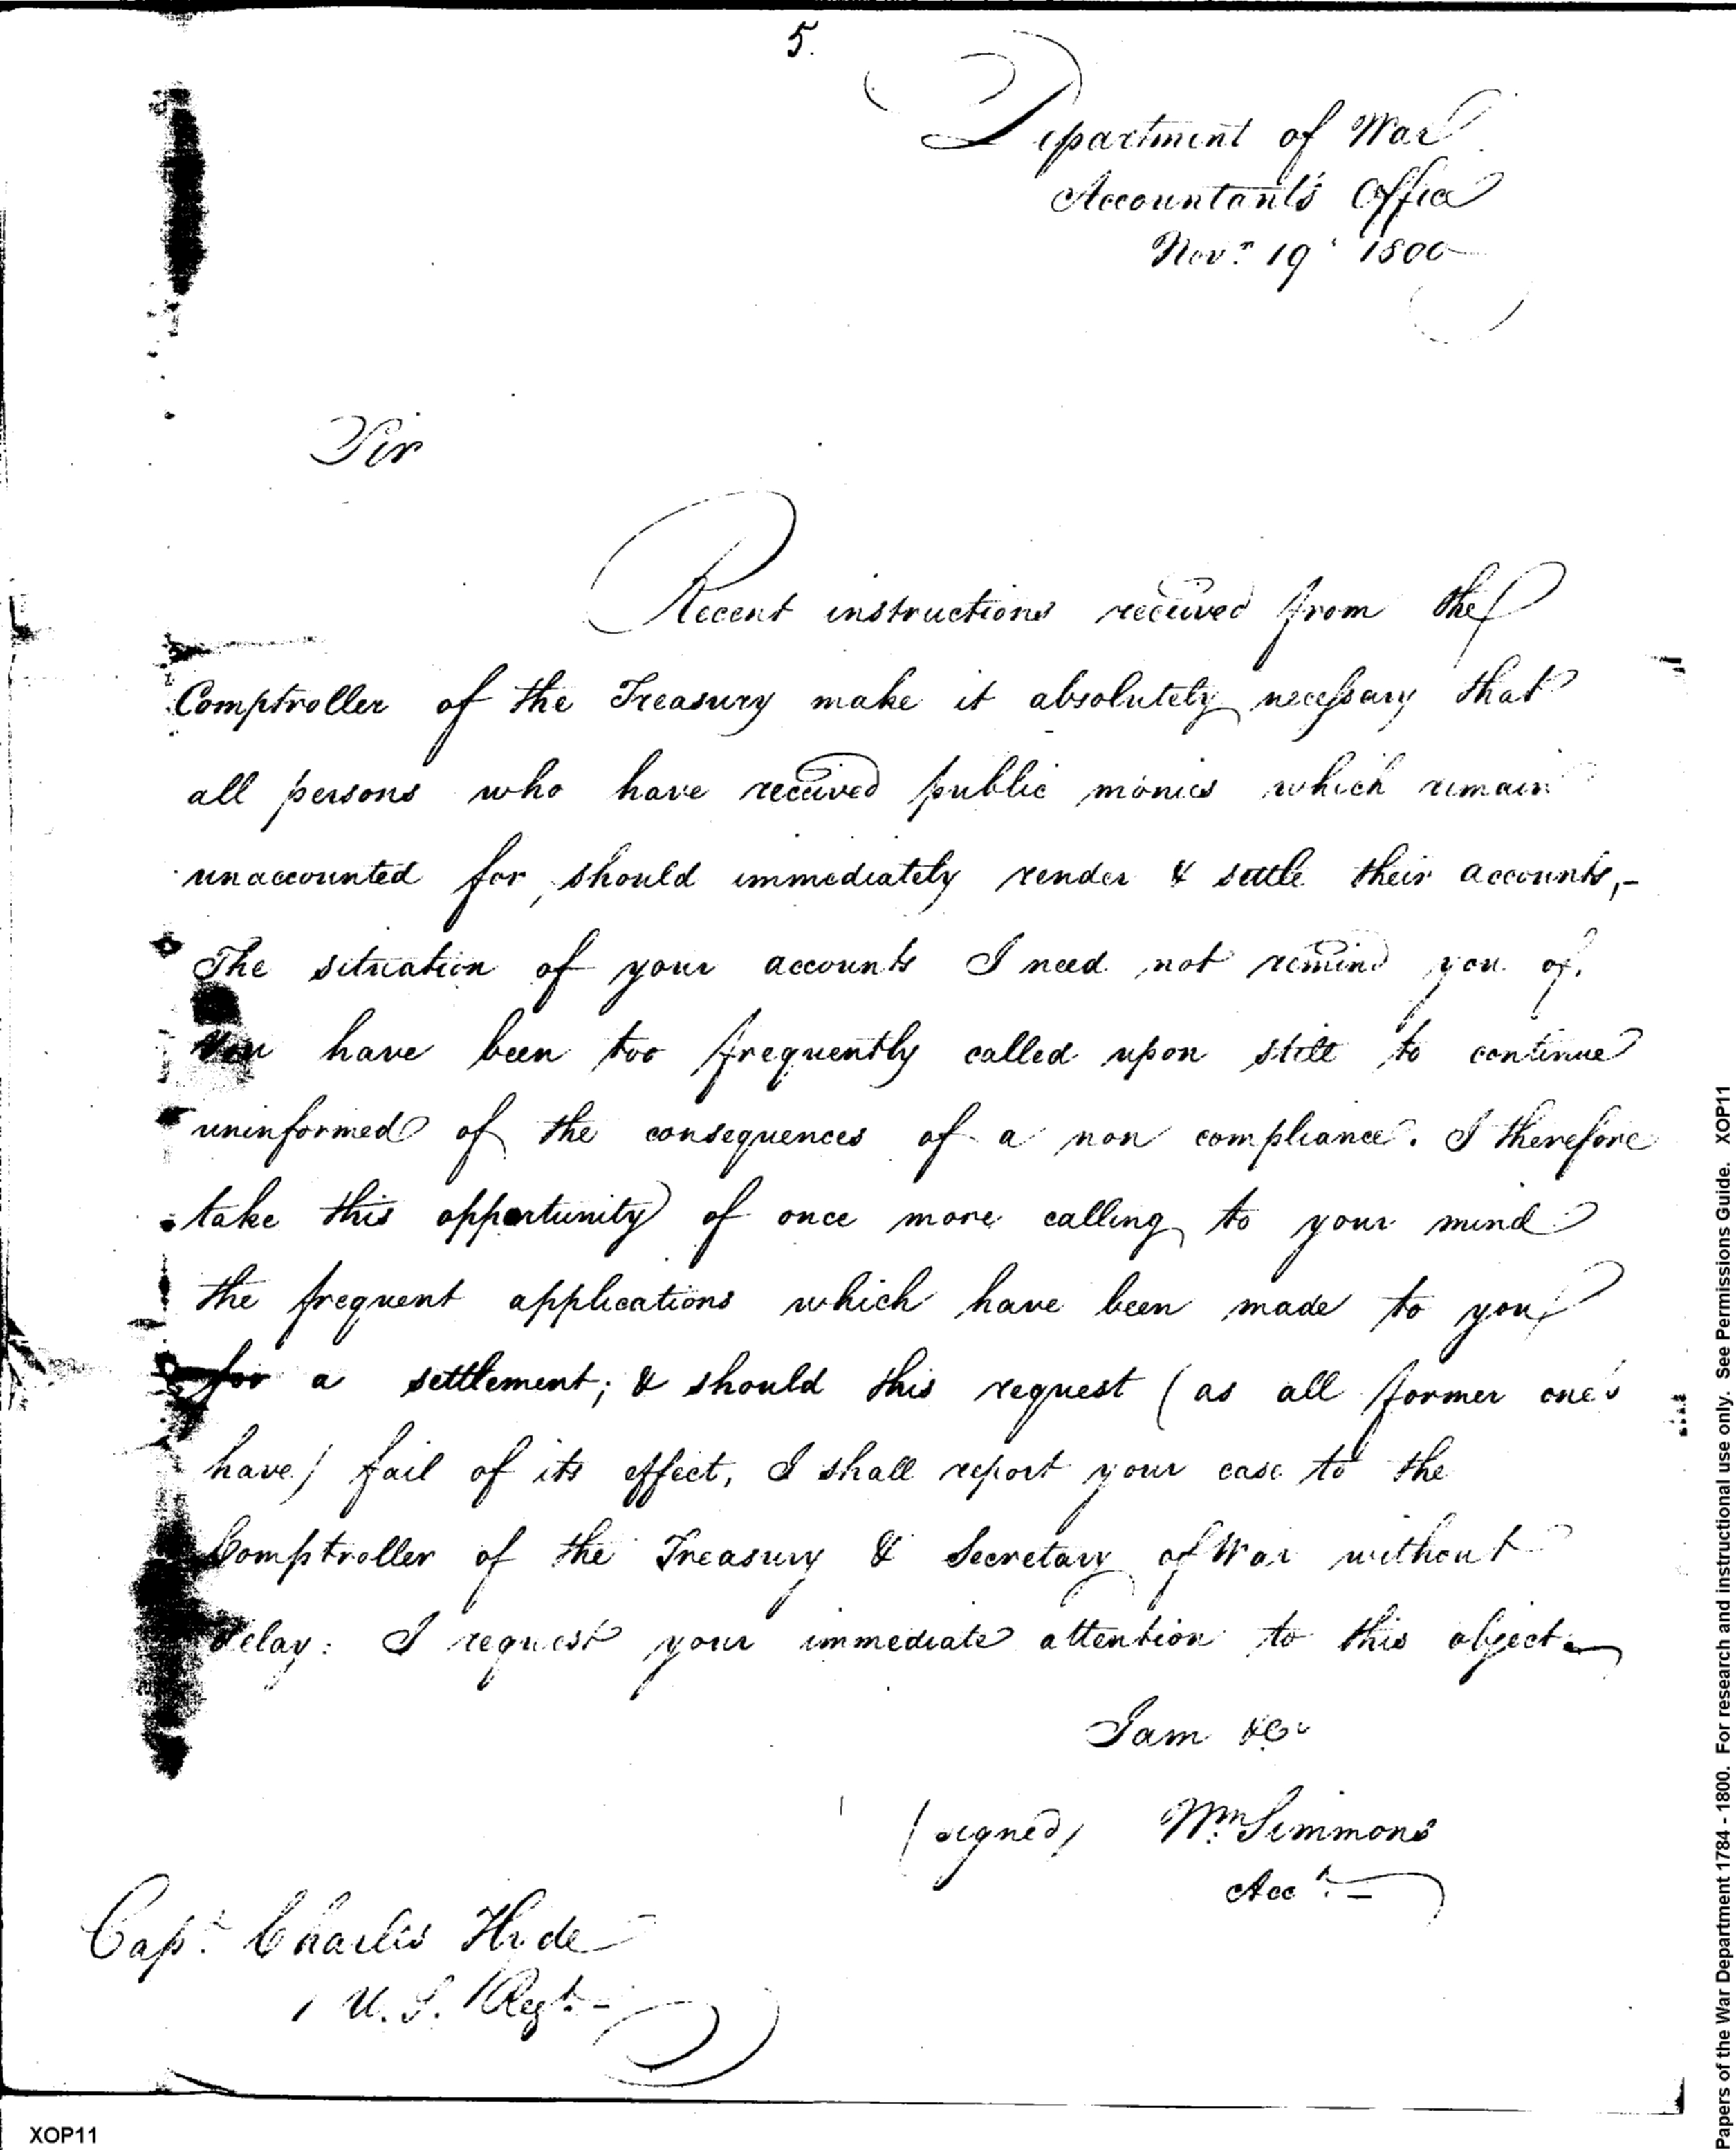 5.
Department of War
Accountant's Office
Novr. 19 1800
Sir
Recent instructions received from the
Comptroller of the Treasury make it absolutely necessary that
all persons who have received public monies which remain
unaccounted for, should immediately render & settle their accounts,-
The situation of your accounts I need not remind you of.
You have been too frequently called upon still to continue
uninformed of the consequences of a non compliance. I therefore
take this opportunity of once more calling to your mind
the frequent applications which have been made to you
for a settlement; & should this request (as all former one's
have) fail of its effect, I shall report your case to the
Comptroller of the Treasury & Secretary of War without
delay: I request your immediate attention to this object.
I am &c.
(signed) Wm. Simmons
Acct. -
Capt. Charles Hyde
1 U. S. Regt. -
XOP11
Papers of the War Department 1784 - 1800. For research and instructional use only. See Permissions Guide. XOP11